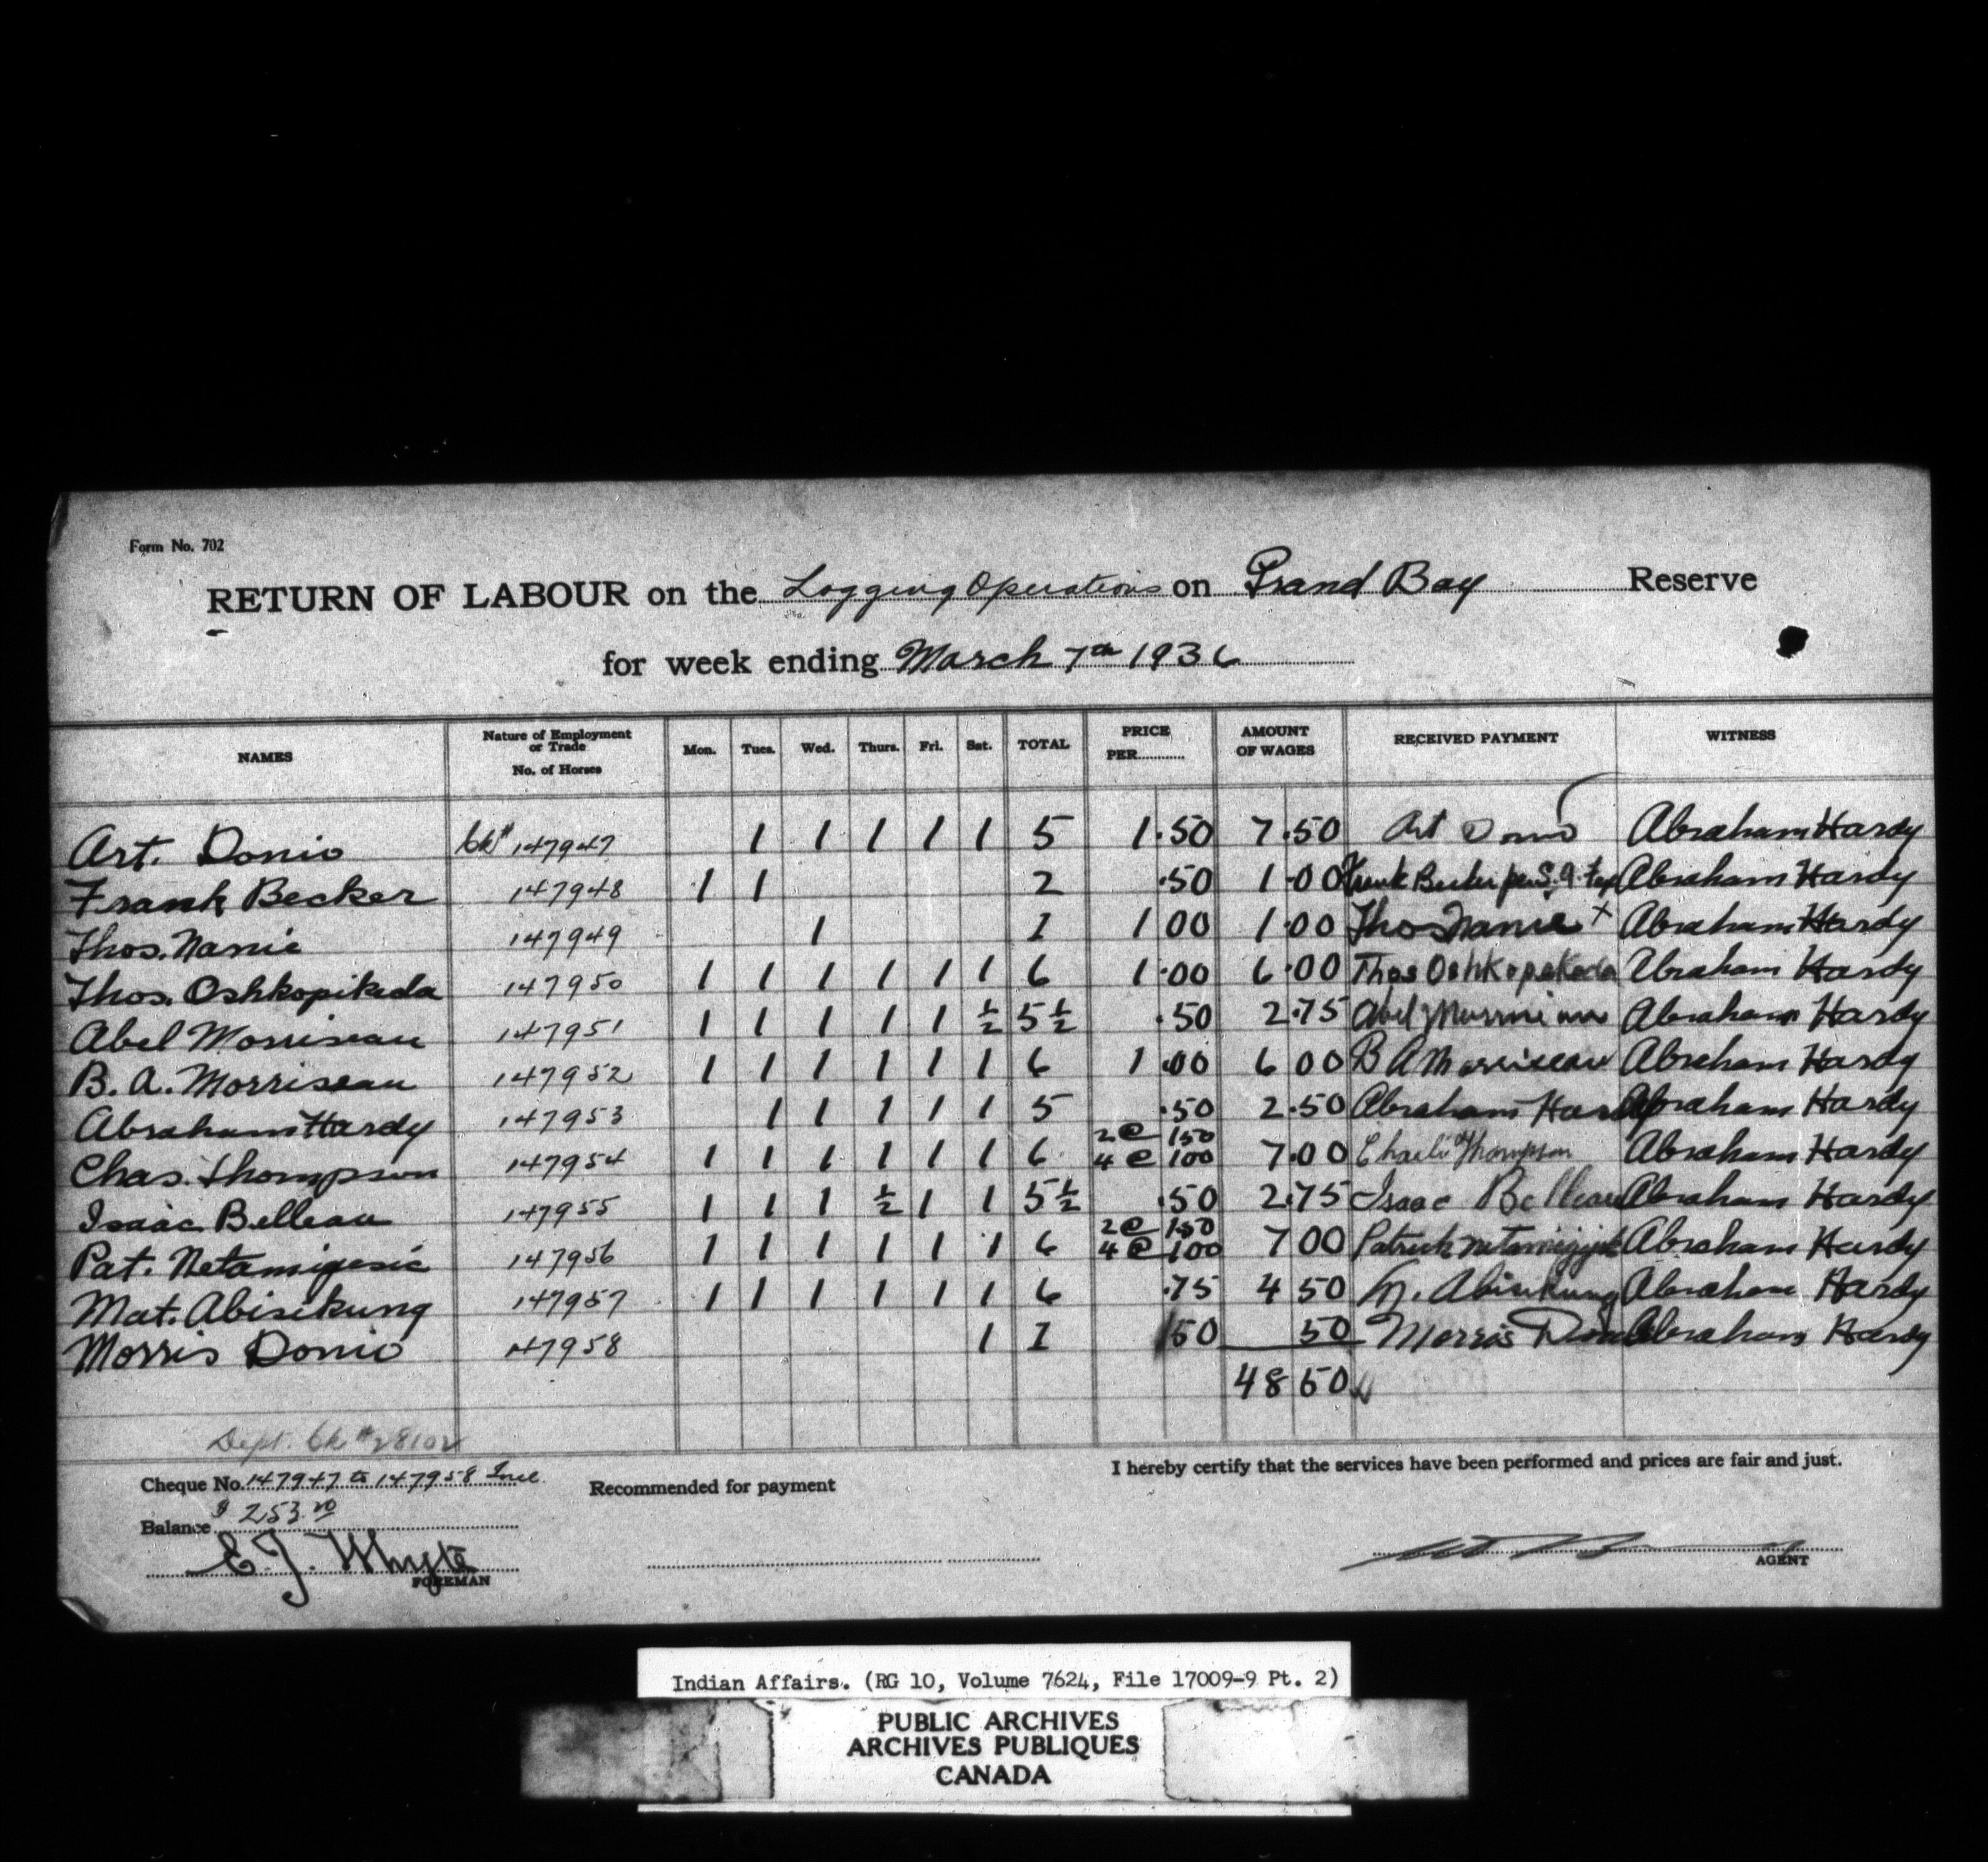 Form No. 702
RETURN OF LABOUR on the Logging Operations on Grand Bay Reserve
for week ending March 7th 1936
NAMES Nature of Employment or Trade No. of Horses Mon. Tues. Wed. Thurs. Fri. Sat. TOTAL PRICE PER AMOUNT OF WAGES RECEIVED PAYMENT WITNESS
Art. Donio Ck# 147947 1 1 1 1 1 5 1.50 7.50 Art Donio Abraham Hardy
Frank Becker 147948 1 1 2 .50 1.00 Frank Becker per Abraham Hardy
Thos. Nanie 147949 1 1 1 00 1.00 Thos Nanie X Abraham Hardy
Thos. Oshkopikeda 147950 1 1 1 1 1 1 6 1.00 6.00 Thos Oshkopekeda Abraham Hardy
Abel Morriseau 147951 1 1 1 1 1 ½ 5½ .50 2.75 Abel Abraham Hardy
B. A. Morriseau 147952 1 1 1 1 1 1 6 1.00 6 00 B A Morriseau Abraham Hardy
Abraham Hardy 147953 1 1 1 1 1 5 .50 2.50 Abraham Hardy Abraham Hardy
Chas. Thompson 147954 1 1 1 1 1 1 6 2 @ 150 4 @ 100 7.00 Charlie Thompson Abraham Hardy
Isaac Belleau 147955 1 1 1 ½ 1 1 5½ .50 2.75 Isaac Belleau Abraham Hardy
Pat. Netamigesic 147956 1 1 1 1 1 1 6 2 @ 150 4 @ 100 7 00 Patrick Abraham Hardy
Mat. Abisekung 147957 1 1 1 1 1 1 6 .75 4 50 M. Abisekung Abraham Hardy
Morris Donio 147958 1 1 50 50 Morris Donio Abraham Hardy
48 50
Dept. Ck # 28102
Cheque No. 147947 to 147958 Incl.
Recommended for payment
I hereby certify that the services have been performed and prices are fair and just.
Balance $ 253.20
E. J. Whyte
FOREMAN
AGENT
Indian Affairs. (RG 10, Volume 7624, File 17009-9 Pt. 2)
PUBLIC ARCHIVES
ARCHIVES PUBLIQUES
CANADA